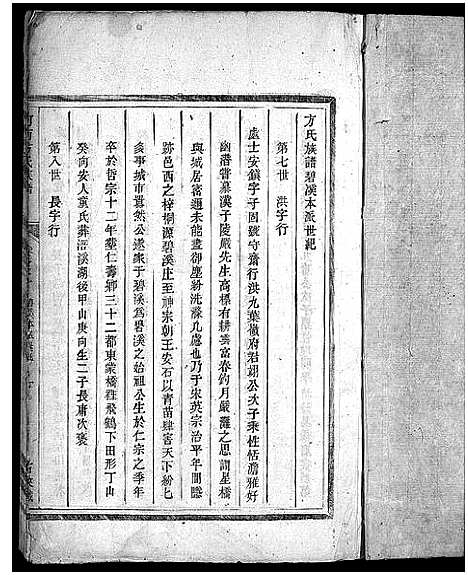 方氏族譜碧溪本派世紀
第七世　洪字行
處士安鎮字子固號守齋行洪九葉徵府君翊公次子秉性恬澹雅好
幽潛嘗慕漢子陵嚴先生高標有耕雲富春釣月嚴灘之思謂星橋
與城居富邇未能盡御塵紛洗滌几慮也乃于宋英宗治平年間隱
跡邑西之梓桐源碧溪庄至神宗朝王安石以青苗肆害天下紛七
多事城市囂然公遂家于碧溪為碧溪之始祖公生於仁宗之季年
卒於哲宗十二年塟仁壽鄉三十二都東業橋雅飛鶴下田形丁山
癸向安人袁氏葬溪湖後甲山庚向生二子長庸次褒
第八世　長字行